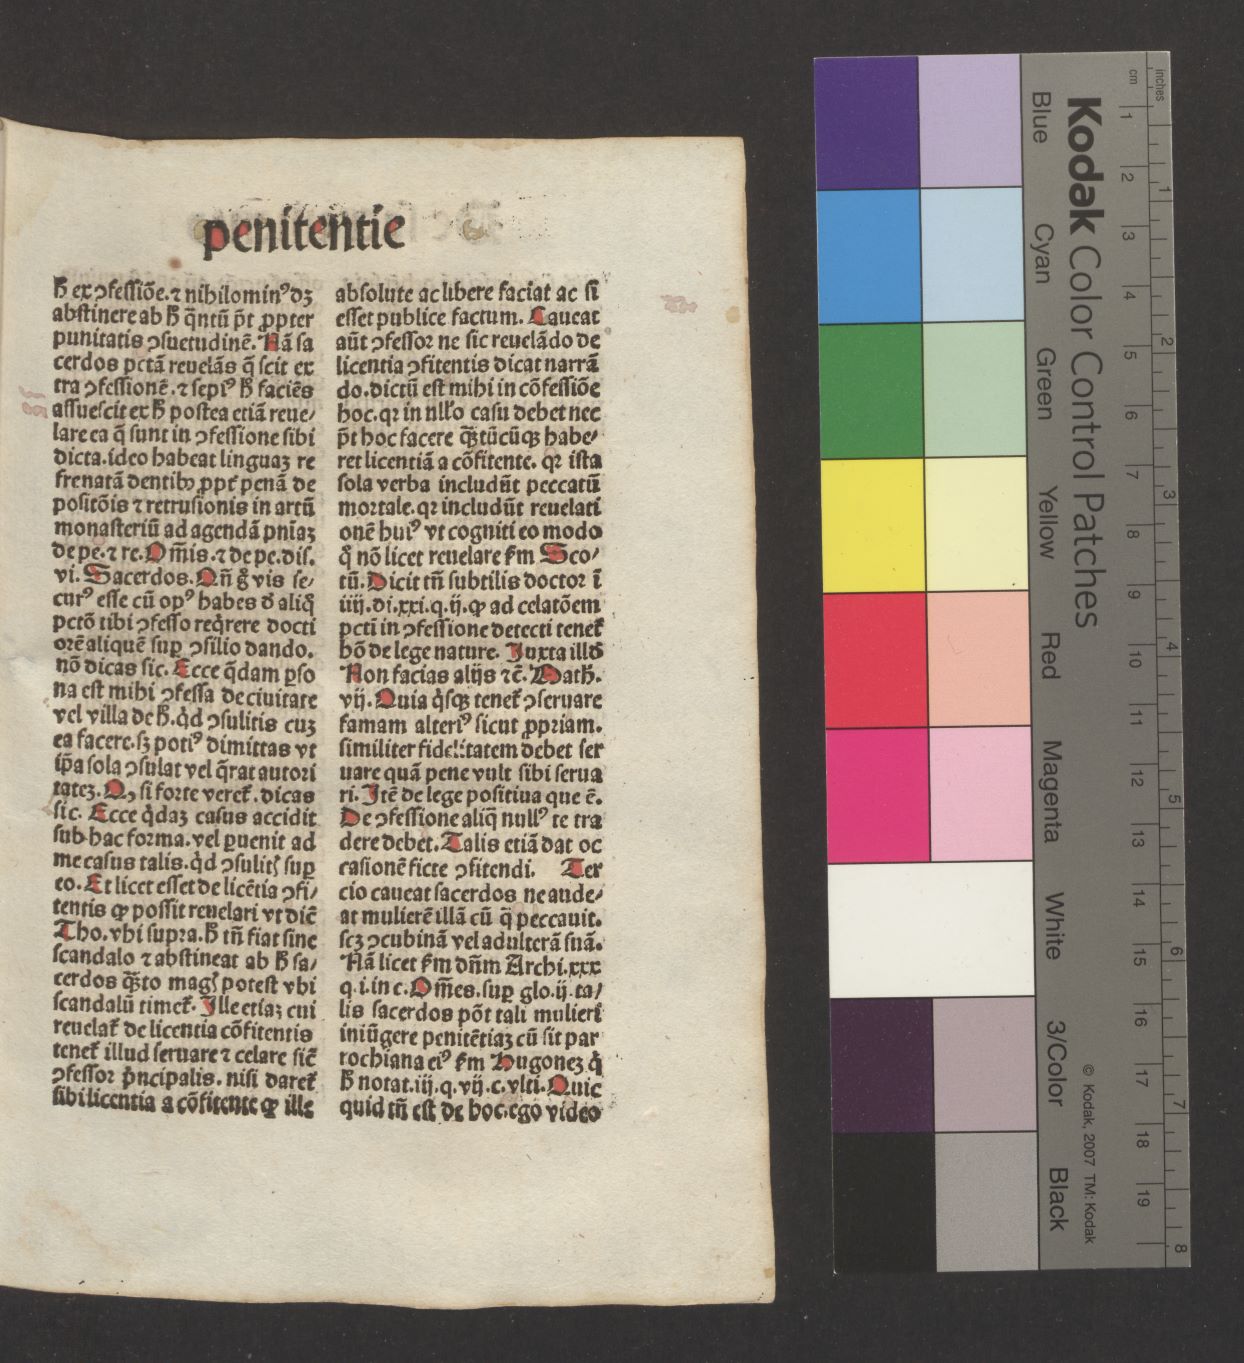 penitentie
ħ ex ꝯfessiōe. ⁊ nihilominꝰ dꝫ
abstinere ab ħ q̄ntū p̄t ꝓpter
punitatis ꝯsuetudinē. Nā sa
cerdos pctā reuelās q̄ scit ex
tra ꝯfessionē. ⁊ sepiꝰ ħ faciēs
assuescit ex ħ postea etiā reue/
lare ea q̄ sunt in ꝯfessione sibi
dicta. ideo habeat linguaꝫ re
frenatā dentibꝰ ꝓpt̄ penā de
positōis ⁊ retrusionis in artū
monasteriū ad agendā pnīaꝫ
de pe. ⁊ re. Om̄is. ⁊ de pe. dis.
vi. Sacerdos. Qn̄ g̊ vis se/
curꝰ esse cū opꝰ habes ď aliq̊
pctō tibi ꝯfesso req̊rere docti
orē aliquē suꝑ ꝯsilio dando.
nō dicas sic. Ecce q̄dam ꝑso
na est mihi ꝯfessa de ciuitate
vel villa de ħ. q̊d ꝯsulitis cuꝫ
ea facere. sꝫ potiꝰ dimittas vt
ip̄a sola ꝯsulat vel q̄rat autori
tateꝫ. Qꝫ si forte veret᷑. dicas
sic. Ecce q̊daꝫ casus accidit
sub hac forma. vel ꝑuenit ad
me casus talis. q̊d ꝯsulitꝭ suꝑ
eo. Et licet esset de licētia ꝯfi/
tentis ꝙ possit reuelari vt dic̄
Tho. vbi supra. ħ tn̄ fiat sine
scandalo ⁊ abstineat ab ħ sa/
cerdos q̄ꝫto magꝭ potest vbi
scandalū timet᷑. Ille etiaꝫ cui
reuelat᷑ de licentia cōfitentis
tenet᷑ illud seruare ⁊ celare sic̄
ꝯfessor pͥncipalis. nisi daret᷑
sibi licentia a cōfitente ꝙ ille
absolute ac libere faciat ac si
esset publice factum. Caueat
aūt ꝯfessor ne sic reuelādo de
licentia ꝯfitentis dicat narrā
do. dictū est mihi in cōfessiōe
hoc. qꝛ in nll̄o casu debet nec
p̄t hoc facere q̄ꝫtūcūqꝫ habe/
ret licentiā a cōfitente. qꝛ ista
sola verba includūt peccatū
mortale. qꝛ includūt reuelati
onē huiꝰ vt cogniti eo modo
q̊ nō licet reuelare ẜm Sco/
tū. Dicit tn̄ subtilis doctor ī
iiij. di. xxi. q. ij. ꝙ ad celatōem
pctī in ꝯfessione detecti tenet᷑
hō de lege nature. Iuxta illď
Non facias alijs ⁊c̄. Math̄.
vij. Quia q̊sqꝫ tenet᷑ ꝯseruare
famam alteriꝰ sicut ꝓpriam.
similiter fidelitatem debet ser
uare quā pene vult sibi serua
ri. Itē de lege positiua que ē.
De ꝯfessione aliq̄ nullꝰ te tra
dere debet. Talis etiā dat oc
casionē ficte ꝯfitendi. Ter
cio caueat sacerdos ne aude/
at mulierē illā cū q̄ peccauit.
scꝫ ꝯcubinā vel adulterā suā.
Nā licet ẜm dn̄m Archi. xxx
q. i. in c. Om̄es. suꝑ glo. ij. ta/
lis sacerdos pōt tali mulieri
iniūgere penitētiaꝫ cū sit par
rochiana eiꝰ ẜm Hugoneꝫ q̊
ħ notat. iij. q. vij. c. vlti. Quic
quid tn̄ est de hoc. ego video
Kodak Color Control Patches
Blue Cyan Green Yellow Red Magenta White 3/Color Black
© Kodak, 2007 TM: Kodak
cm 1 2 3 4 5 6 7 8 9 10 11 12 13 14 15 16 17 18 19
inches 1 2 3 4 5 6 7 8